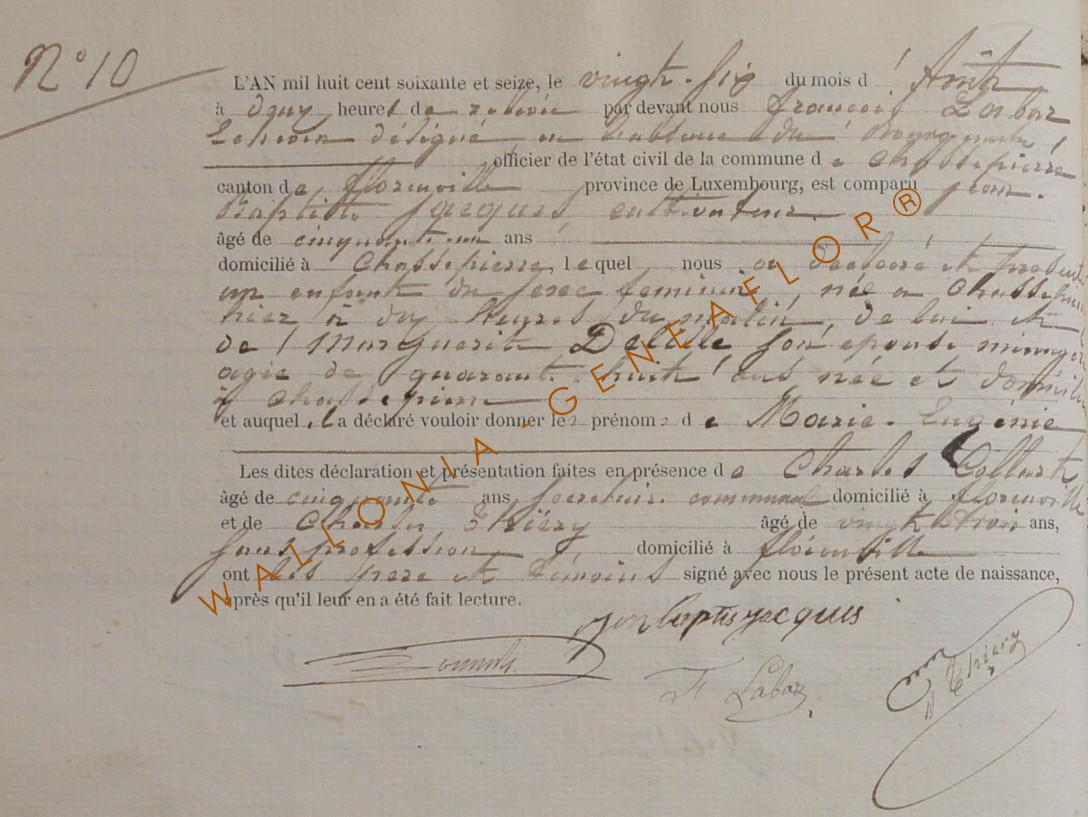 N° 10
L'AN mil huit cent soixante et seize, le vingt-six du mois d' Août
à deux heures de relevée par devant nous François Labaz
Echevin désigné en l'absence du Bourgmestre
officier de l'état civil de la commune de Chassepierre
canton de Florenville province de Luxembourg, est comparu Jean.
Baptiste Jacques cultivateur.
âgé de cinquante-un ans
domicilié à Chassepierre, lequel nous a déclaré et présenté
un enfant du sexe feminin, née à Chassepierre
hier à dix heures du matin, de lui et
de Marguerite Delille son épouse ménagère
agée de quarante-huit ans née et domiciliée
à Chassepierre
et auquel il a déclaré vouloir donner les prénoms de Marie-Eugénie
Les dites déclaration et présentation faites en présence de Charles Collart
âgé de cinquante ans secrétaire communal domicilié à Florenville
et de Charles Thiéry âgé de vingt trois ans,
sans profession domicilié à Florenville
ont les père et témoins signé avec nous le présent acte de naissance,
après qu'il leur en a été fait lecture.
jon baptis jacques
F Labaz
Thiéry
WALLONIA-GENEAFLOR®